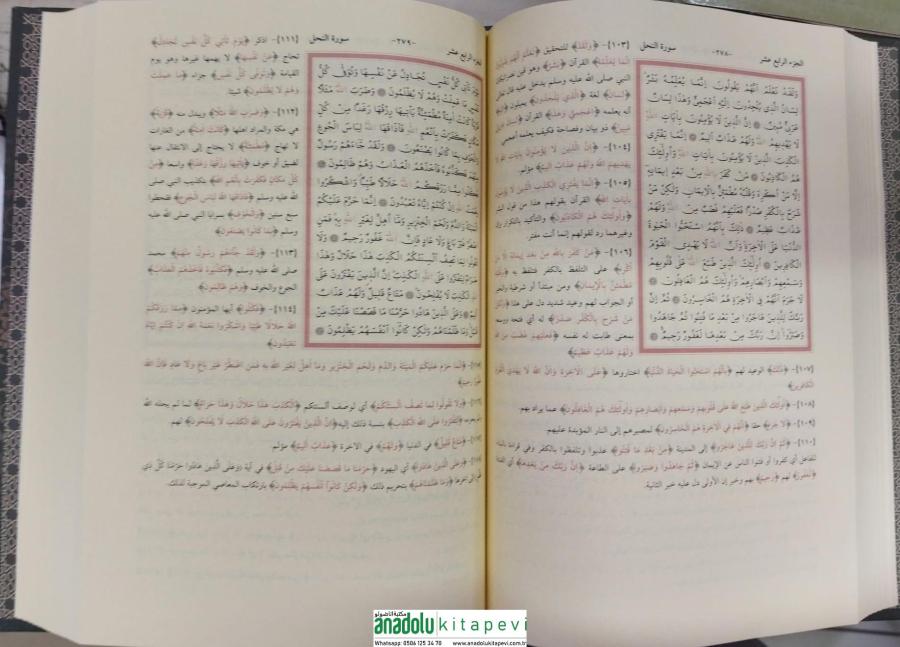 الجزء الرابع عشر
-٢٧٨-
سورة النحل
وَلَقَدْ نَعْلَمُ أَنَّهُمْ يَقُولُونَ إِنَّمَا يُعَلِّمُهُ بَشَرٌ
لِسَانُ الَّذِي يُلْحِدُونَ إِلَيْهِ أَعْجَمِيٌّ وَهَذَا لِسَانٌ
عَرَبِيٌّ مُبِينٌ إِنَّ الَّذِينَ لَا يُؤْمِنُونَ بِآيَاتِ اللهِ
لَا يَهْدِيهِمُ اللهُ وَلَهُمْ عَذَابٌ أَلِيمٌ إِنَّمَا يَفْتَرِي
الْكَذِبَ الَّذِينَ لَا يُؤْمِنُونَ بِآيَاتِ اللهِ وَأُولَئِكَ
هُمُ الْكَاذِبُونَ مَنْ كَفَرَ بِاللهِ مِنْ بَعْدِ إِيمَانِهِ
إِلَّا مَنْ أُكْرِهَ وَقَلْبُهُ مُطْمَئِنٌّ بِالْإِيمَانِ وَلَكِنْ مَنْ
شَرَحَ بِالْكُفْرِ صَدْرًا فَعَلَيْهِمْ غَضَبٌ مِنَ اللهِ وَلَهُمْ
عَذَابٌ عَظِيمٌ ذَلِكَ بِأَنَّهُمُ اسْتَحَبُّوا الْحَيَوةَ
الدُّنْيَا عَلَى الْآخِرَةِ وَأَنَّ اللهَ لَا يَهْدِي الْقَوْمَ
الْكَافِرِينَ أُولَئِكَ الَّذِينَ طَبَعَ اللهُ عَلَى قُلُوبِهِمْ
وَسَمْعِهِمْ وَأَبْصَارِهِمْ وَأُولَئِكَ هُمُ الْغَافِلُونَ
لَا جَرَمَ أَنَّهُمْ فِي الْآخِرَةِ هُمُ الْخَاسِرُونَ ثُمَّ إِنَّ
رَبَّكَ لِلَّذِينَ هَاجَرُوا مِنْ بَعْدِ مَا فُتِنُوا ثُمَّ جَاهَدُوا
وَصَبَرُوا إِنَّ رَبَّكَ مِنْ بَعْدِهَا لَغَفُورٌ رَحِيمٌ
[١٠٣]- ﴿وَلَقَدْ﴾ للتحقيق ﴿نَعْلَمُ أَنَّهُمْ يَقُولُونَ
إِنَّمَا يُعَلِّمُهُ﴾ القرآن ﴿بَشَرٌ﴾ وهو قين نصراني
النبي صلى الله عليه وسلم يدخل عليه قال تعالى
﴿لِسَانُ﴾ لغة ﴿الَّذِي يُلْحِدُونَ﴾ يميلون ﴿إِلَيْهِ﴾
أنه يعلمه ﴿أَعْجَمِيٌّ وَهَذَا﴾ القرآن ﴿لِسَانٌ
مُبِينٌ﴾ ذو بيان وفصاحة فكيف يعلمه أعجمي
[١٠٤]- ﴿إِنَّ الَّذِينَ لَا يُؤْمِنُونَ بِآيَاتِ اللهِ
يَهْدِيهِمُ اللهُ وَلَهُمْ عَذَابٌ أَلِيمٌ﴾ مؤلم.
[١٠٥]- ﴿إِنَّمَا يَفْتَرِي الْكَذِبَ الَّذِينَ لَا يُؤْمِنُونَ
بِآيَاتِ اللهِ﴾ القرآن بقولهم هذا من قول البشر
﴿وَأُولَئِكَ هُمُ الْكَاذِبُونَ﴾ والتأكيد بالتكرار وإن
وغيرهما رد لقولهم إنما أنت مفتر.
[١٠٦]- ﴿مَنْ كَفَرَ بِاللهِ مِنْ بَعْدِ إِيمَانِهِ إِلَّا مَنْ
أُكْرِهَ﴾ على التلفظ بالكفر فتلفظ به
مُطْمَئِنٌّ بِالْإِيمَانِ﴾ ومن مبتدأ أو شرطية والخبر
أو الجواب لهم وعيد شديد دل على هذا
مَنْ شَرَحَ بِالْكُفْرِ صَدْرًا﴾ له أي فتحه ووسعه
بمعنى طابت له نفسه ﴿فَعَلَيْهِمْ غَضَبٌ مِنَ اللهِ
وَلَهُمْ عَذَابٌ عَظِيمٌ﴾
[١٠٧]- ﴿ذَلِكَ﴾ الوعيد لهم ﴿بِأَنَّهُمُ اسْتَحَبُّوا الْحَيَاةَ الدُّنْيَا﴾ اختاروها ﴿عَلَى الْآخِرَةِ وَأَنَّ اللهَ لَا يَهْدِي الْقَوْمَ
الْكَافِرِينَ﴾
[١٠٨]- ﴿أُولَئِكَ الَّذِينَ طَبَعَ اللهُ عَلَى قُلُوبِهِمْ وَسَمْعِهِمْ وَأَبْصَارِهِمْ وَأُولَئِكَ هُمُ الْغَافِلُونَ﴾ عما يراد بهم.
[١٠٩]- ﴿لَا جَرَمَ﴾ حقا ﴿أَنَّهُمْ فِي الْآخِرَةِ هُمُ الْخَاسِرُونَ﴾ لمصيرهم إلى النار المؤبدة عليهم.
[١١٠]- ﴿ثُمَّ إِنَّ رَبَّكَ لِلَّذِينَ هَاجَرُوا﴾ إلى المدينة ﴿مِنْ بَعْدِ مَا فُتِنُوا﴾ عذبوا وتلفظوا بالكفر وفي قراءة بالبناء
للفاعل أي كفروا أو فتنوا الناس عن الإيمان ﴿ثُمَّ جَاهَدُوا وَصَبَرُوا﴾ على الطاعة ﴿إِنَّ رَبَّكَ مِنْ بَعْدِهَا﴾ أي الفتنة
﴿لَغَفُورٌ﴾ لهم ﴿رَحِيمٌ﴾ بهم وخبر إن الأولى دل عليه خبر الثانية.
الجزء الرابع عشر
-٢٧٩-
سورة النحل
يَوْمَ تَأْتِي كُلُّ نَفْسٍ تُجَادِلُ عَنْ نَفْسِهَا وَتُوَفَّى كُلُّ
نَفْسٍ مَا عَمِلَتْ وَهُمْ لَا يُظْلَمُونَ وَضَرَبَ اللهُ مَثَلًا
قَرْيَةً كَانَتْ آمِنَةً مُطْمَئِنَّةً يَأْتِيهَا رِزْقُهَا رَغَدًا مِنْ كُلِّ
مَكَانٍ فَكَفَرَتْ بِأَنْعُمِ اللهِ فَأَذَاقَهَا اللهُ لِبَاسَ الْجُوعِ
وَالْخَوْفِ بِمَا كَانُوا يَصْنَعُونَ وَلَقَدْ جَاءَهُمْ رَسُولٌ
مِنْهُمْ فَكَذَّبُوهُ فَأَخَذَهُمُ الْعَذَابُ وَهُمْ ظَالِمُونَ
فَكُلُوا مِمَّا رَزَقَكُمُ اللهُ حَلَالًا طَيِّبًا وَاشْكُرُوا
نِعْمَتَ اللهِ إِنْ كُنْتُمْ إِيَّاهُ تَعْبُدُونَ إِنَّمَا حَرَّمَ عَلَيْكُمُ
الْمَيْتَةَ وَالدَّمَ وَلَحْمَ الْخِنْزِيرِ وَمَا أُهِلَّ لِغَيْرِ اللهِ بِهِ فَمَنِ
اضْطُرَّ غَيْرَ بَاغٍ وَلَا عَادٍ فَإِنَّ اللهَ غَفُورٌ رَحِيمٌ وَلَا
تَقُولُوا لِمَا تَصِفُ أَلْسِنَتُكُمُ الْكَذِبَ هَذَا حَلَالٌ وَهَذَا
حَرَامٌ لِتَفْتَرُوا عَلَى اللهِ الْكَذِبَ إِنَّ الَّذِينَ يَفْتَرُونَ عَلَى
اللهِ الْكَذِبَ لَا يُفْلِحُونَ مَتَاعٌ قَلِيلٌ وَلَهُمْ عَذَابٌ
أَلِيمٌ وَعَلَى الَّذِينَ هَادُوا حَرَّمْنَا مَا قَصَصْنَا عَلَيْكَ مِنْ
قَبْلُ وَمَا ظَلَمْنَاهُمْ وَلَكِنْ كَانُوا أَنْفُسَهُمْ يَظْلِمُونَ
[١١١]- اذكر ﴿يَوْمَ تَأْتِي كُلُّ نَفْسٍ تُجَادِلُ﴾
تحاج ﴿عَنْ نَفْسِهَا﴾ لا يهمها غيرها وهو يوم
القيامة ﴿وَتُوَفَّى كُلُّ نَفْسٍ﴾ جزاء ﴿مَا عَمِلَتْ
وَهُمْ لَا يُظْلَمُونَ﴾ شيئا.
[١١٢]- ﴿وَضَرَبَ اللهُ مَثَلًا﴾ ويبدل منه ﴿قَرْيَةً﴾
هي مكة والمراد أهلها ﴿كَانَتْ آمِنَةً﴾ من الغارات
لا تهاج ﴿مُطْمَئِنَّةً﴾ لا يحتاج إلى الانتقال عنها
لضيق أو خوف ﴿يَأْتِيهَا رِزْقُهَا رَغَدًا﴾ واسعا ﴿مِنْ
كُلِّ مَكَانٍ فَكَفَرَتْ بِأَنْعُمِ اللهِ﴾ بتكذيب النبي صلى
الله عليه وسلم ﴿فَأَذَاقَهَا اللهُ لِبَاسَ الْجُوعِ﴾ فقحطوا
سبع سنين ﴿وَالْخَوْفِ﴾ بسرايا النبي صلى الله عليه
وسلم ﴿بِمَا كَانُوا يَصْنَعُونَ﴾
[١١٣]- ﴿وَلَقَدْ جَاءَهُمْ رَسُولٌ مِنْهُمْ﴾ محمد
صلى الله عليه وسلم ﴿فَكَذَّبُوهُ فَأَخَذَهُمُ الْعَذَابُ﴾
الجوع والخوف ﴿وَهُمْ ظَالِمُونَ﴾
[١١٤]- ﴿فَكُلُوا﴾ أيها المؤمنون ﴿مِمَّا رَزَقَكُمُ
اللهُ حَلَالًا طَيِّبًا وَاشْكُرُوا نِعْمَةَ اللهِ إِنْ كُنْتُمْ إِيَّاهُ
تَعْبُدُونَ﴾
﴿إِنَّمَا حَرَّمَ عَلَيْكُمُ الْمَيْتَةَ وَالدَّمَ وَلَحْمَ الْخِنْزِيرِ وَمَا أُهِلَّ لِغَيْرِ اللهِ بِهِ فَمَنِ اضْطُرَّ غَيْرَ بَاغٍ وَلَا عَادٍ فَإِنَّ اللهَ
غَفُورٌ رَحِيمٌ﴾
﴿وَلَا تَقُولُوا لِمَا تَصِفُ أَلْسِنَتُكُمُ﴾ أي لوصف ألسنتكم ﴿الْكَذِبَ هَذَا حَلَالٌ وَهَذَا حَرَامٌ﴾ لما لم يحله الله
ولم يحرمه ﴿لِتَفْتَرُوا عَلَى اللهِ الْكَذِبَ﴾ بنسبة ذلك إليه ﴿إِنَّ الَّذِينَ يَفْتَرُونَ عَلَى اللهِ الْكَذِبَ لَا يُفْلِحُونَ﴾ لهم.
﴿مَتَاعٌ قَلِيلٌ﴾ في الدنيا ﴿وَلَهُمْ﴾ في الآخرة ﴿عَذَابٌ أَلِيمٌ﴾ مؤلم.
﴿وَعَلَى الَّذِينَ هَادُوا﴾ أي اليهود ﴿حَرَّمْنَا مَا قَصَصْنَا عَلَيْكَ مِنْ قَبْلُ﴾ في آية (وعلى الذين هادوا حرمنا كل ذي
ظفر) إلى آخرها ﴿وَمَا ظَلَمْنَاهُمْ﴾ بتحريم ذلك ﴿وَلَكِنْ كَانُوا أَنْفُسَهُمْ يَظْلِمُونَ﴾ بارتكاب المعاصي الموجبة لذلك.
مكتبة الأناضولو
anadolu kitapevi
Whatsapp: 0506 125 34 70 www.anadolukitapevi.com